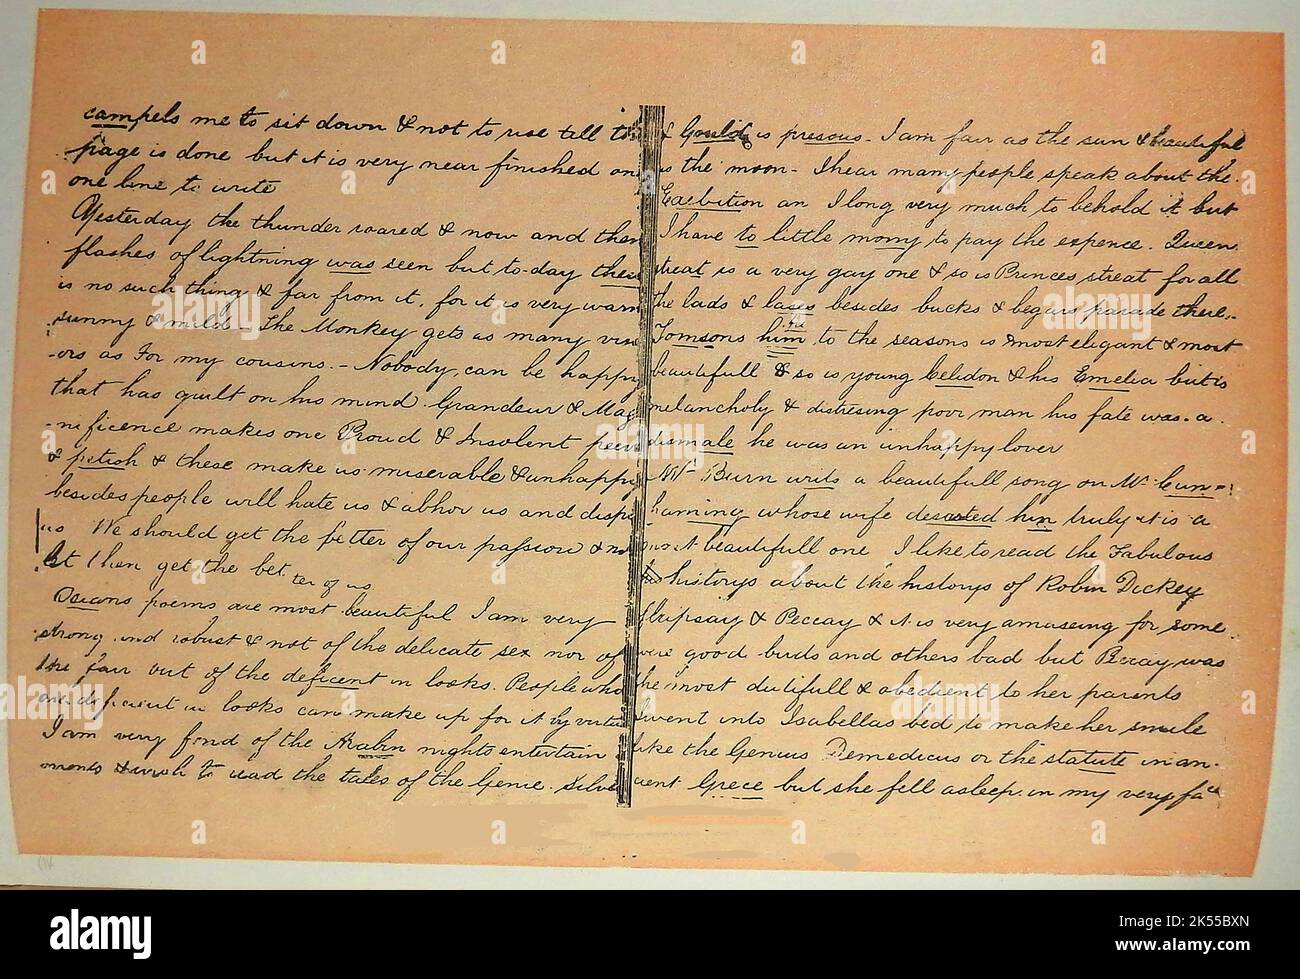 campels me to sit down & not to rise till th
page is done but it is very near finished on
one line to write
Yesterday the thunder roared & now and then
flashes of lightning was seen but to-day their
is no such thing & far from it, for it is very warm
sunny & mild - The Monkey gets as many vis
-ors as For my cousins. - Nobody can be happy
that has guilt on his mind Grandeur & Mag
-nificence makes one Proud & Insolent peevi
& petish & these make us miserable & unhappy
besides people will hate us & abhor us and dispi
us We should get the better of our passions & no
let them get the bet
ter of us
Osians poems are most beautiful I am very
strong and robust & not of the delicate sex nor of
the fair but of the deficent in looks. People who
are deficent in looks can make up for it by virtue
I am very fond of the Arabin nights entertain
ments & wish to read the tales of the Genie. Silve
& Gould is presous - I am fair as the sun & beautiful
as the moon - I hear many people speak about the
Exebition an I long very much to behold it but
I have to little mony to pay the expence. Queen
streat is a very gay one & so is Princes streat for all
the lads & lases besides bucks & begars parade there -
Tomsons him to the seasons is most elegant & most
beautifull & so is young Celidon & his Emelia but is
melancholy & distresing poor man his fate was a
dismale he was an unhappy lover
Mr Burn writs a beautifull song on Mr Cun=
haming whose wife desarted him truly it is a
most beautifull one I like to read the Fabulous
historys about the historys of Robin Dickey
flripsay & Peccay & it is very amuseing for some
were good birds and others bad but Peccay was
the most dutifull & obedient to her parents
I went into Isabellas bed to make her smile
like the Genius Demedicus or the statute in an-
cient Grece but she fell asleep in my very face
alamy
Image ID: 2K55BXN
www.alamy.com